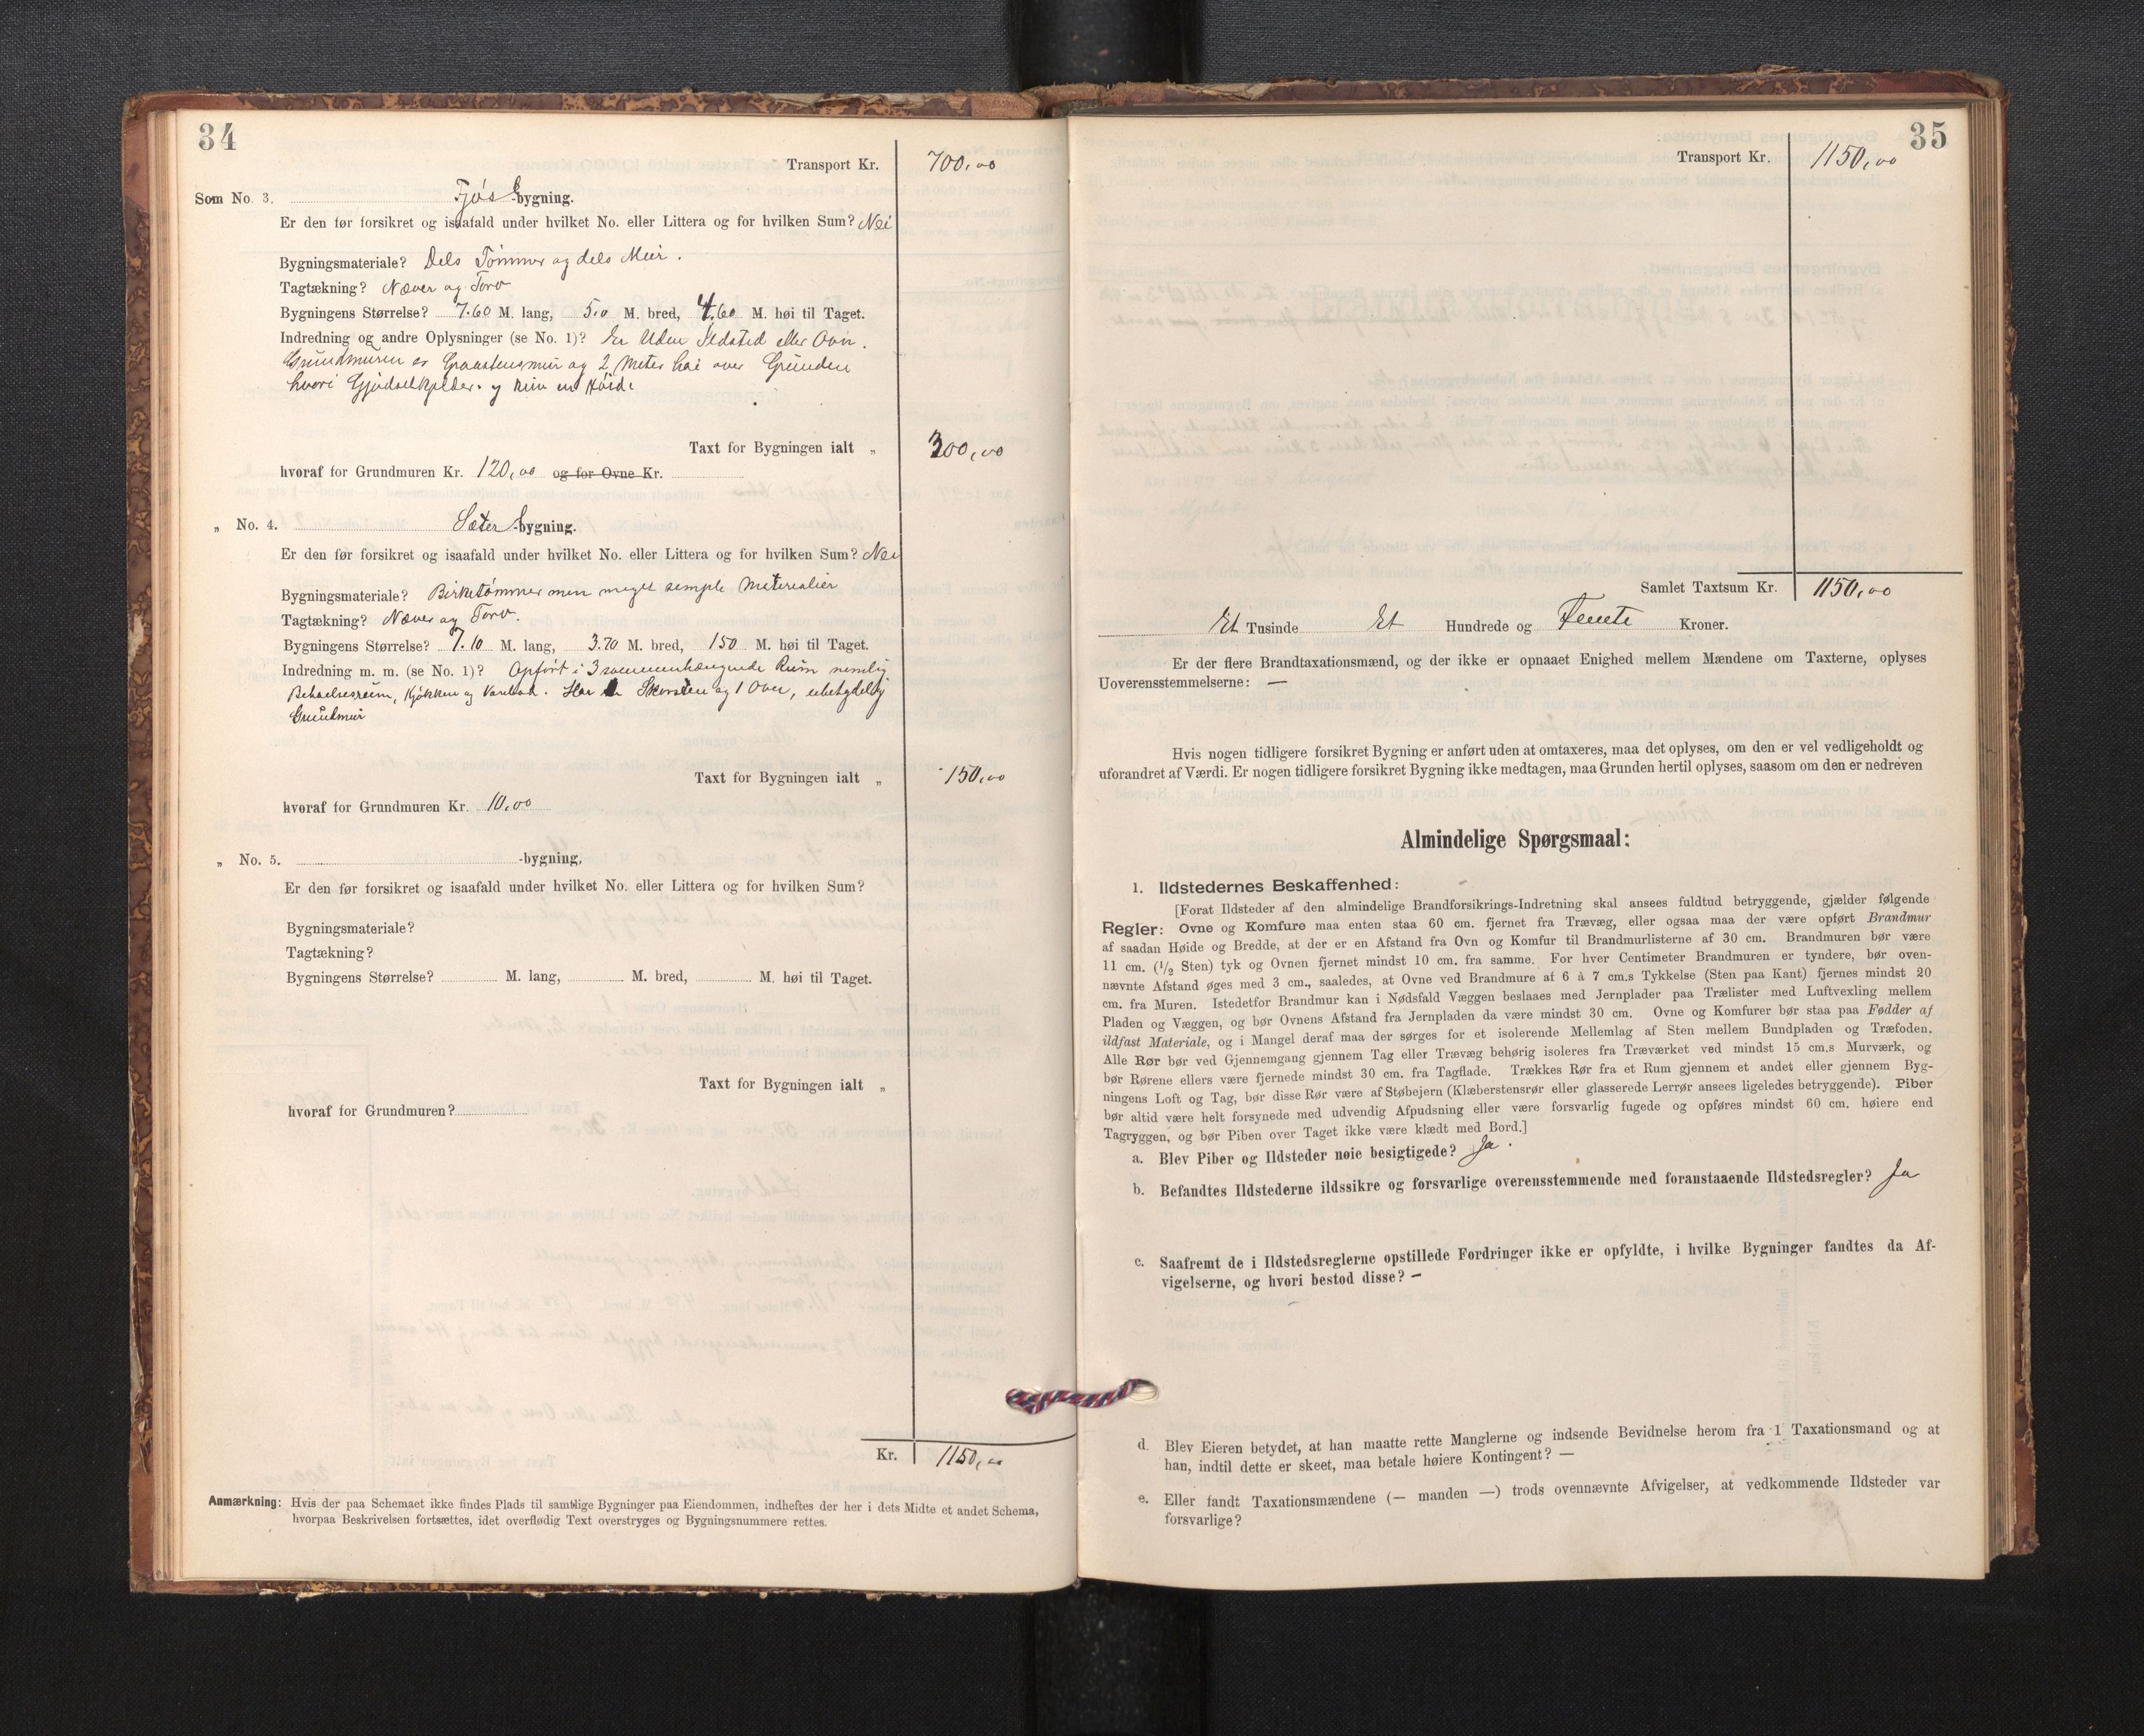 34
Transport Kr. 700,00
Som No. 3. Fjøs-bygning.
Er den før forsikret og isaafald under hvilket No. eller Littera og for hvilken Sum? Nei
Bygningsmateriale? Dels Tømmer og dels Mur.
Tagtækning? Næver og Torv
Bygningens Størrelse? 7.60 M. lang, 5.0 M. bred, 4.60 M. høi til Taget.
Indredning og andre Oplysninger (se No. 1)? Er Uden Ildsted eller Ovn.
Grundmuren er Graastensmur og 2 Meter høi over Grunden
hvori Gjødselkjelder. og
Taxt for Bygningen ialt „ 300,00
hvoraf for Grundmuren Kr. 120,00 og for Ovne Kr.
„ No. 4. Sæter-bygning.
Er den før forsikret og isaafald under hvilket No. eller Littera og for hvilken Sum? Nei
Bygningsmateriale? Birketømmer men meget simple Materialier
Tagtækning? Næver og Torv.
Bygningens Størrelse? 7.10 M. lang, 3.70 M. bred, 150 M. høi til Taget.
Indredning m. m. (se No. 1)? Opført i 3 sammenhængende Rum nemlig
Beboelsesrum, Kjøkken og Har Skorsten og 1 Ovn, ubetydelig
Grundmur
Taxt for Bygningen ialt „ 150,00
hvoraf for Grundmuren Kr. 10,00
„ No. 5. -bygning.
Er den før forsikret og isaafald under hvilket No. eller Littera og for hvilken Sum?
Bygningsmateriale?
Tagtækning?
Bygningens Størrelse? M. lang, M. bred, M. høi til Taget.
Taxt for Bygningen ialt „
hvoraf for Grundmuren?
Kr. 1150,00
Anmærkning: Hvis der paa Schemaet ikke findes Plads til samtlige Bygninger paa Eiendommen, indheftes der her i dets Midte et andet Schema,
hvorpaa Beskrivelsen fortsættes, idet overflødig Text overstryges og Bygningsnummere rettes.
35
Transport Kr. 1150,00
Samlet Taxtsum Kr. 1150,00
Et Tusinde Et Hundrede og Femti Kroner.
Er der flere Brandtaxationsmænd, og der ikke er opnaaet Enighed mellem Mændene om Taxterne, oplyses
Uoverensstemmelserne: —
Hvis nogen tidligere forsikret Bygning er anført uden at omtaxeres, maa det oplyses, om den er vel vedligeholdt og
uforandret af Værdi. Er nogen tidligere forsikret Bygning ikke medtagen, maa Grunden hertil oplyses, saasom om den er nedreven
Almindelige Spørgsmaal:
1. Ildstedernes Beskaffenhed:
[Forat Ildsteder af den almindelige Brandforsikrings-Indretning skal ansees fuldtud betryggende, gjælder følgende
Regler: Ovne og Komfure maa enten staa 60 cm. fjernet fra Trævæg, eller ogsaa maa der være opført Brandmur
af saadan Høide og Bredde, at der er en Afstand fra Ovn og Komfur til Brandmurlisterne af 30 cm. Brandmuren bør være
11 cm. (1/2 Sten) tyk og Ovnen fjernet mindst 10 cm. fra samme. For hver Centimeter Brandmuren er tyndere, bør oven-
nævnte Afstand øges med 3 cm., saaledes, at Ovne ved Brandmure af 6 à 7 cm.s Tykkelse (Sten paa Kant) fjernes mindst 20
cm. fra Muren. Istedetfor Brandmur kan i Nødsfald Væggen beslaaes med Jernplader paa Trælister med Luftvexling mellem
Pladen og Væggen, og bør Ovnens Afstand fra Jernpladen da være mindst 30 cm. Ovne og Komfurer bør staa paa Fødder af
ildfast Materiale, og i Mangel deraf maa der sørges for et isolerende Mellemlag af Sten mellem Bundpladen og Træfoden.
Alle Rør bør ved Gjennemgang gjennem Tag eller Trævæg behørig isoleres fra Træværket ved mindst 15 cm.s Murværk, og
bør Rørene ellers være fjernede mindst 30 cm. fra Tagflade. Trækkes Rør fra et Rum gjennem et andet eller gjennem Byg-
ningens Loft og Tag, bør disse Rør være af Støbejern (Klæberstensrør eller glasserede Lerrør ansees ligeledes betryggende). Piber
bør altid være helt forsynede med udvendig Afpudsning eller være forsvarlig fugede og opføres mindst 60 cm. høiere end
Tagryggen, og bør Piben over Taget ikke være klædt med Bord.]
a. Blev Piber og Ildsteder nøie besigtigede? Ja.
b. Befandtes Ildstederne ildssikre og forsvarlige overensstemmende med foranstaaende Ildstedsregler? Ja
c. Saafremt de i Ildstedsreglerne opstillede Fordringer ikke er opfyldte, i hvilke Bygninger fandtes da Af-
vigelserne, og hvori bestod disse? —
d. Blev Eieren betydet, at han maatte rette Manglerne og indsende Bevidnelse herom fra 1 Taxationsmand og at
han, indtil dette er skeet, maa betale høiere Kontingent? —
e. Eller fandt Taxationsmændene (— manden —) trods ovennævnte Afvigelser, at vedkommende Ildsteder var
forsvarlige?